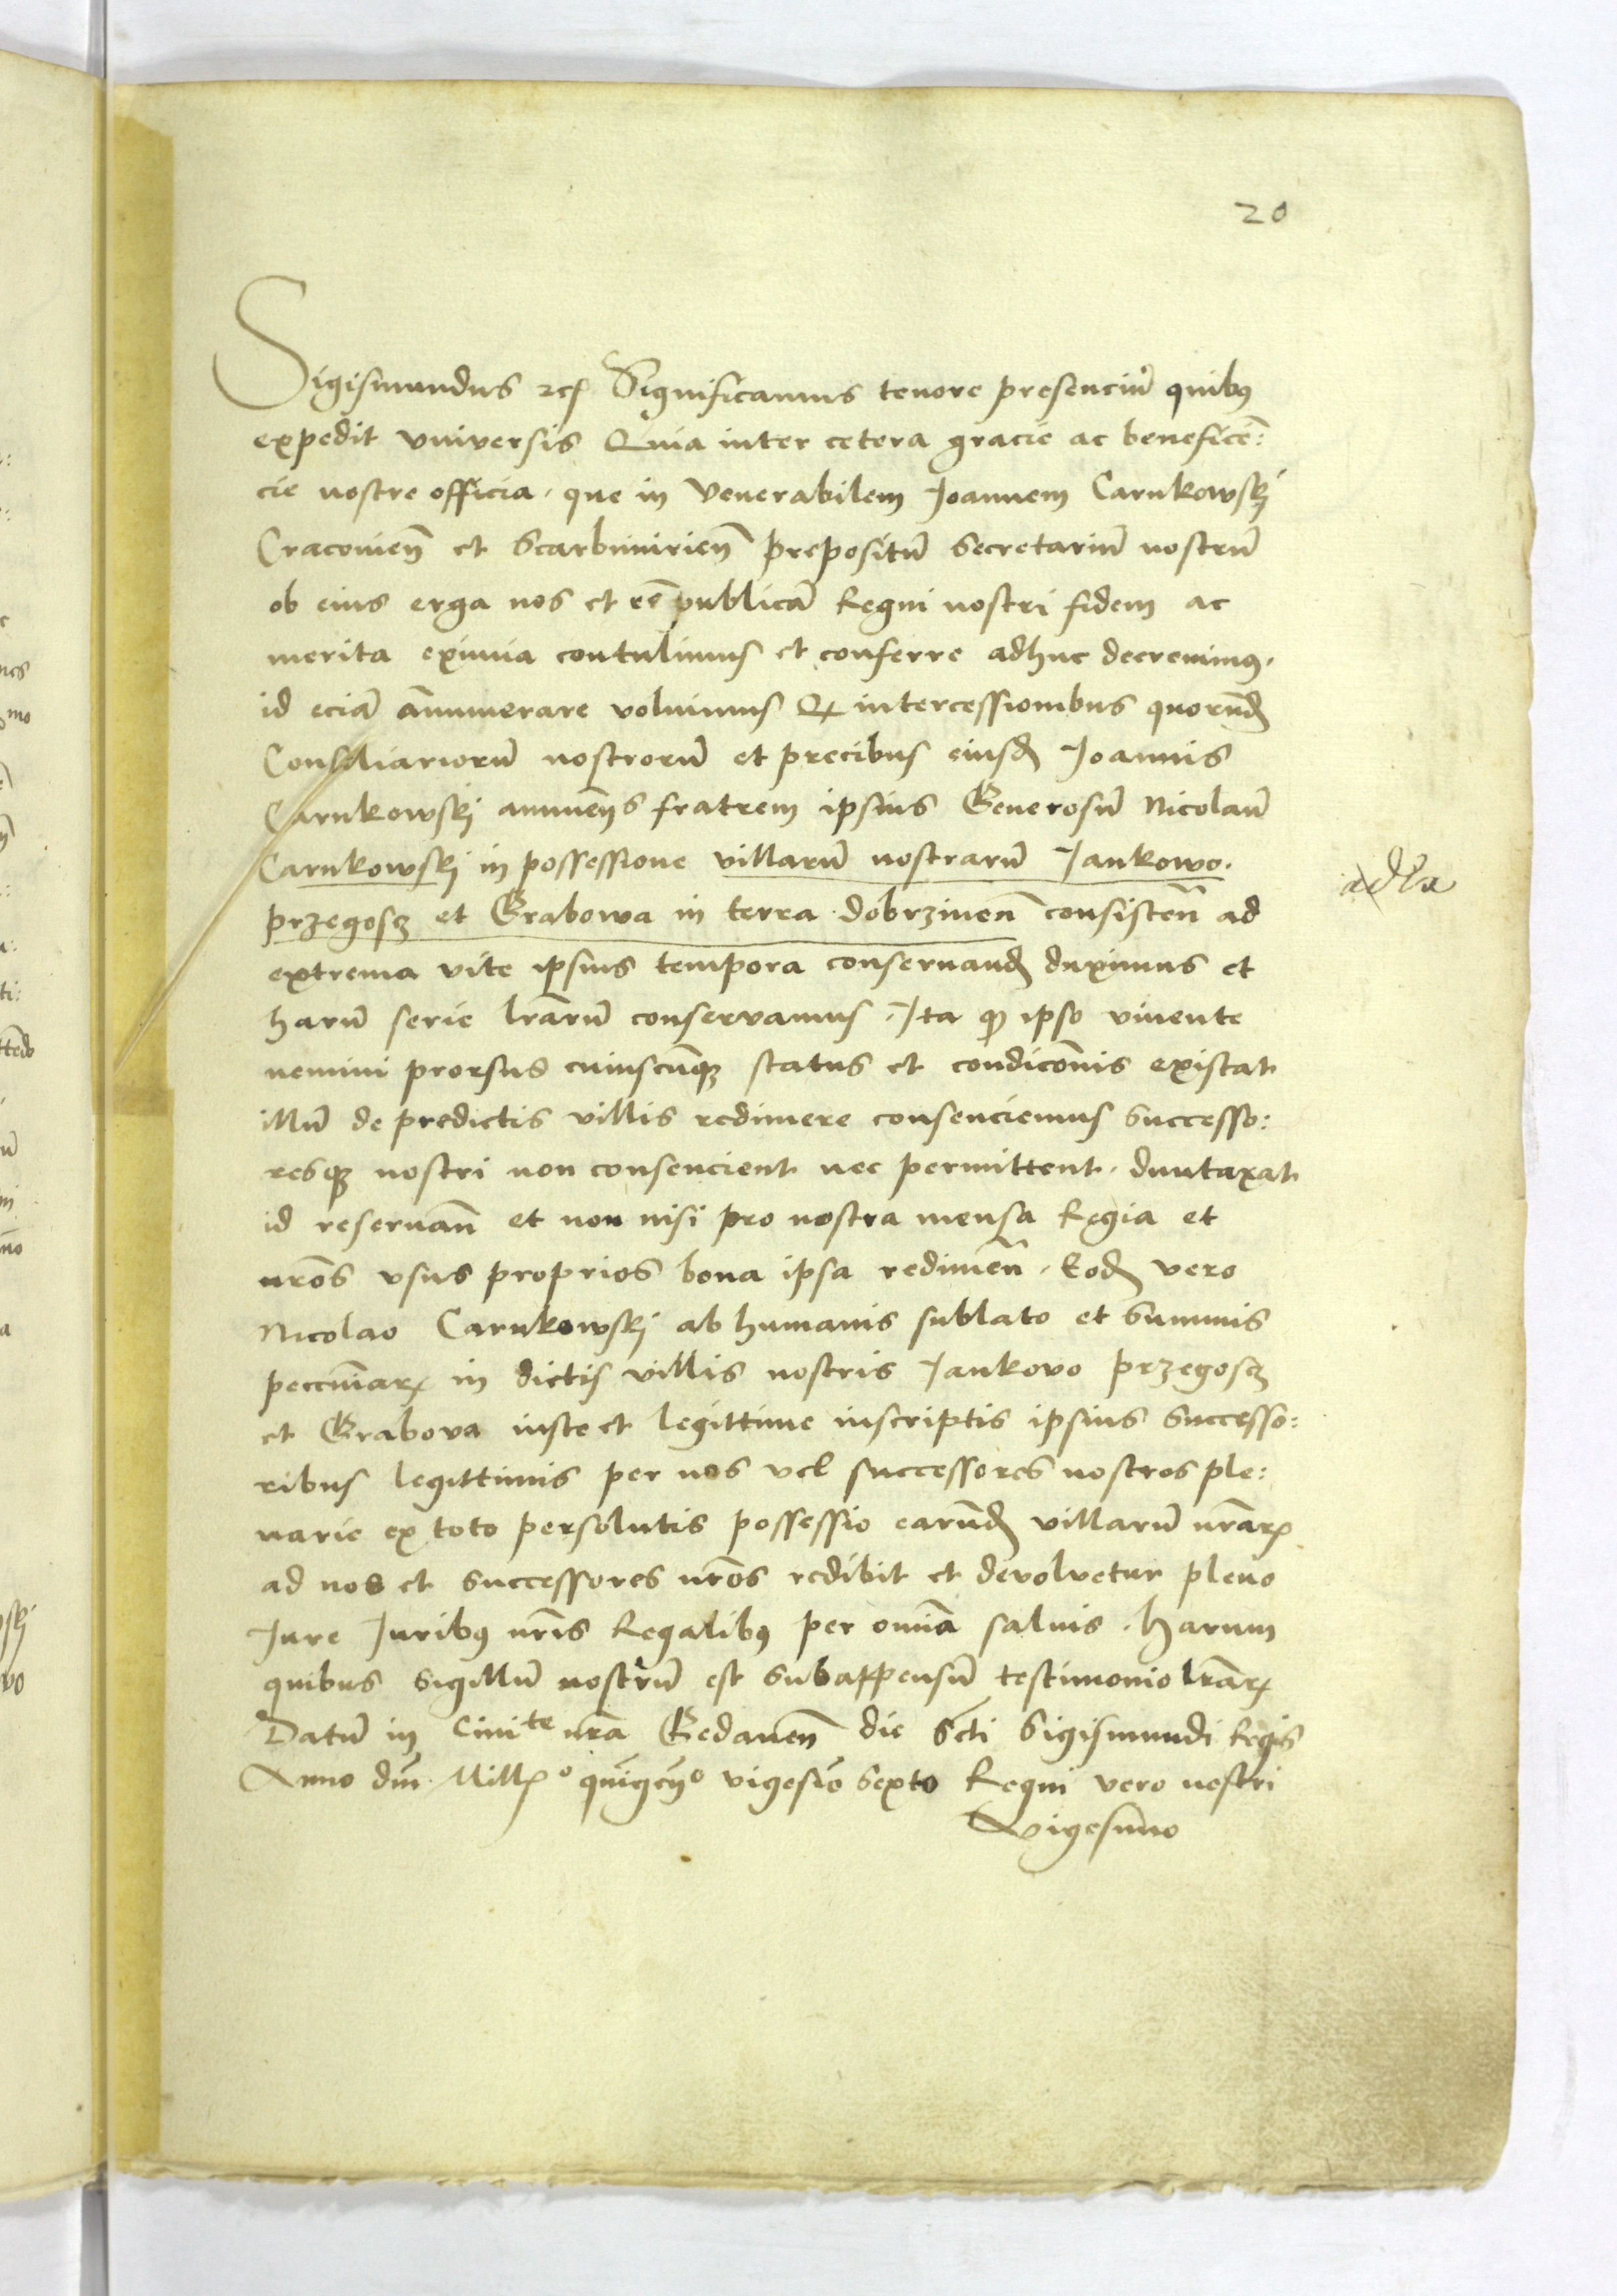 20
Sigismundus etc Significamus tenore presenciũ quibus
expedit vniversis Quia inter cetera gracie ac beneficẽ:
cie nostre officia, que in Venerabilem Joannem Carnkowskj
Cracovieñ et Scarbimirieñ prepositũ Secretariũ nostrũ
ob eius erga nos et rẽ publicã Regni nostri fidem ac
merita eximia contulimus et conferre adhuc decrevimus,
id eciã ãnumerare voluimus Qz intercessionibus quorund̃
Consiliariorũ nostrorũ et precibus eiusd̃ Joannis
Carnkowskj annuẽns fratrem ipsius Generosũ Nicolaũ
Carnkowskj in possessione villarũ nostrarũ Jankowo.
przegosz et Grabowa in terra dobrzineñ consisteñ ad
extrema vite ipsius tempora conservand̃ duximus et
harũ serie lr̃arũ conservamus. Ita qz ipso vivente
nemini prorsus cuiuscũqz status et condicõnis existat
illũ de predictis villis redimere consenciemus Successo:
resqz nostri non consencient nec permittent. duntaxat
id reservañ et non nisi pro nostra mensa Regia et
nr̃os vsus proprios bona ipsa redimeñ. Eod̃ vero
Nicolao Carnkowskj ab humanis sublato et Summis
peccuniarz in dictis villis nostris Jankovo Przegosz
et Grabova iuste et legittime inscriptis ipsius Successo:
ribus legittimis per nos vel successores nostros ple:
narie ex toto persolutis possessio earund̃ villarũ nr̃arz
ad nos et Successores nr̃os redibit et devolvetur pleno
Jure Juribus nr̃is Regalibus per omĩa salvis. Harum
quibus Sigillũ nostrũ est Subappensũ testimonio lr̃arz
Datũ in Civite nr̃a Gedaneñ die Scti Sigismundi Regis
Anno dñi Millo quigẽo vigesio Sexto Regni vero nostri
Vigesimo